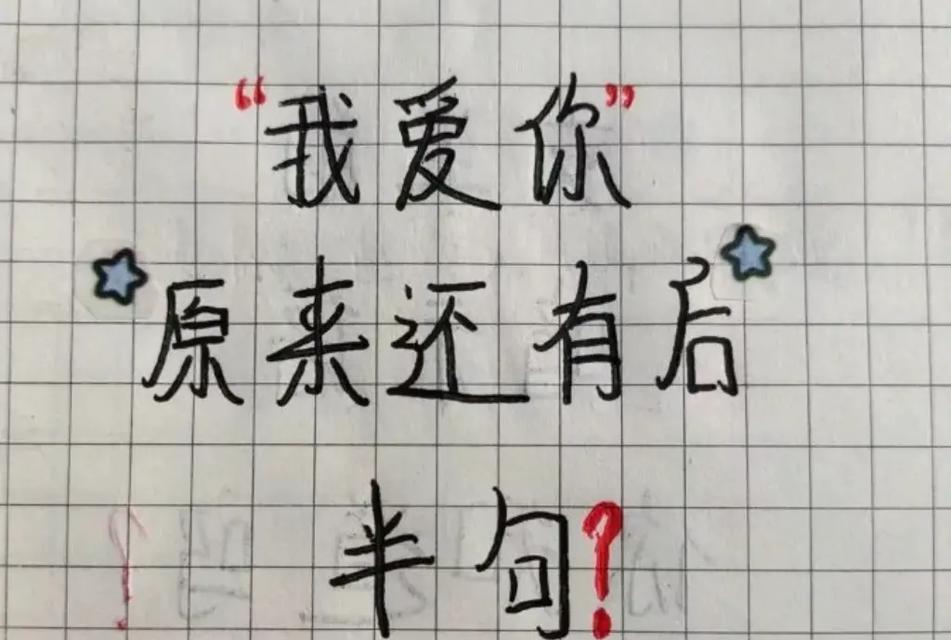 “我爱你”
原来还有后
半句?